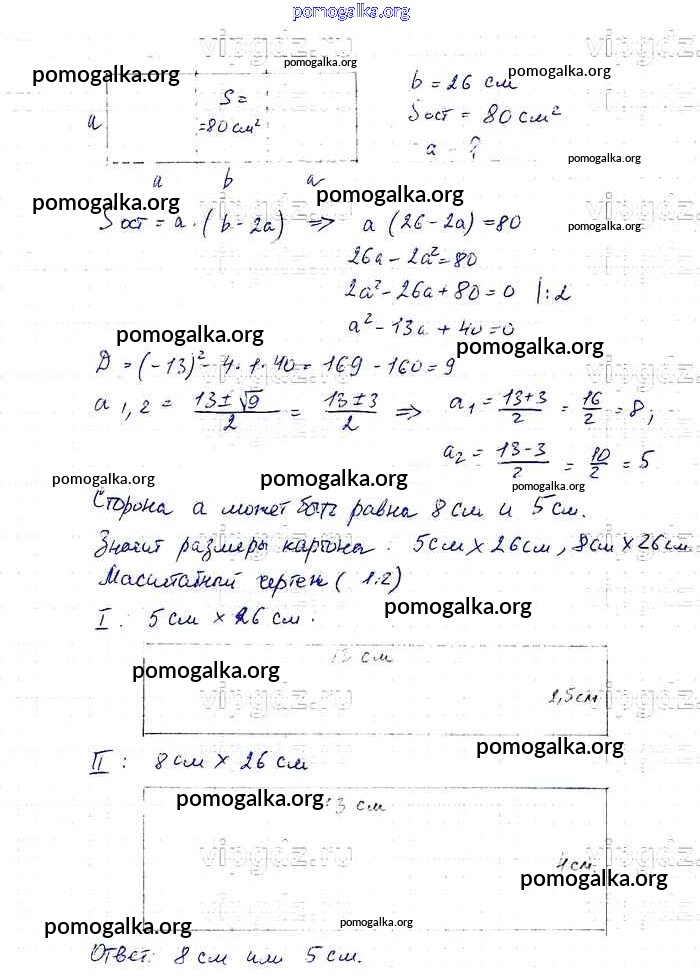 pomogalka.org
vipgdz.ru
pomogalka.org pomogalka.org pomogalka.org
b = 26 см
S =
= 80 см²
a
Sост = 80 см²
a - ?
pomogalka.org
a b a
pomogalka.org pomogalka.org pomogalka.org
Sост = a · (b - 2a) ⇒ a (26 - 2a) = 80
26a - 2a² = 80
2a² - 26a + 80 = 0 |:2
a² - 13a + 40 = 0
pomogalka.org pomogalka.org
D = (-13)² - 4 · 1 · 40 = 169 - 160 = 9
a 1,2 = (13 ± √9)/2 = (13 ± 3)/2 ⇒ a₁ = (13 + 3)/2 = 16/2 = 8;
a₂ = (13 - 3)/2 = 10/2 = 5
pomogalka.org pomogalka.org pomogalka.org
Сторона a может быть равна 8 см и 5 см.
Значит размеры картона: 5 см × 26 см, 8 см × 26 см
Масштабный чертеж (1:2)
pomogalka.org
I: 5 см × 26 см.
13 см
pomogalka.org
vipgdz.ru
2,5 см
pomogalka.org
II: 8 см × 26 см
pomogalka.org
13 см
vipgdz.ru
4 см
pomogalka.org
pomogalka.org pomogalka.org
Ответ: 8 см или 5 см.